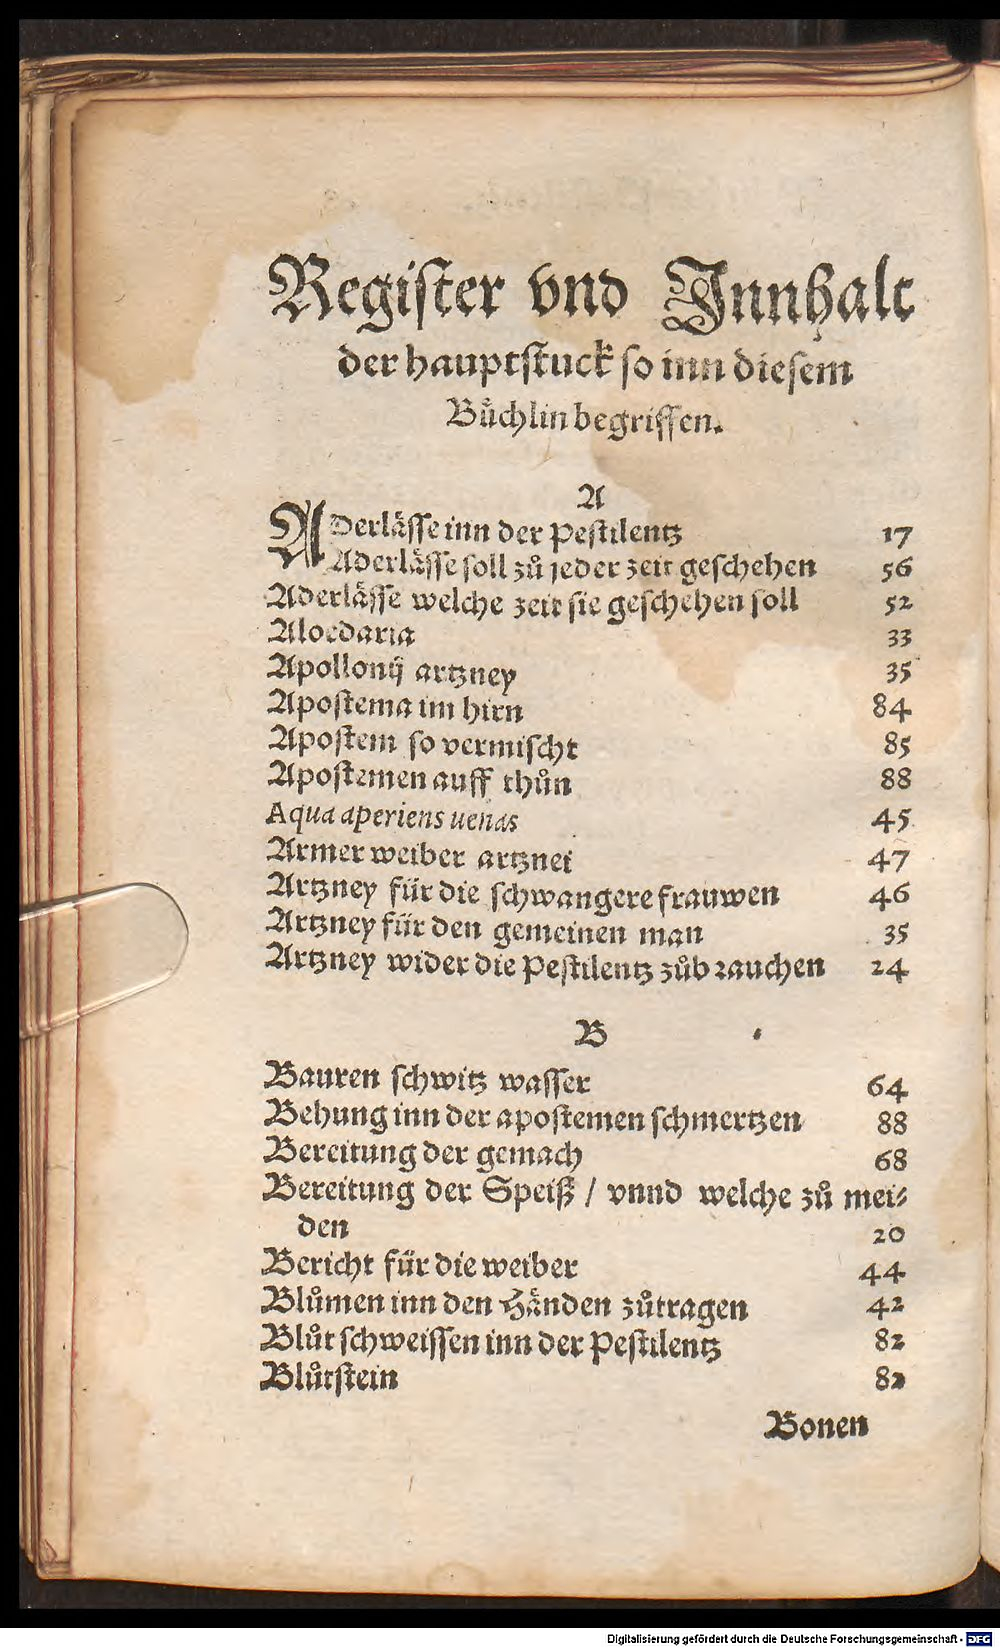 Register vnd Jnnhalt
der hauptstuck so inn diesem
Bůchlin begriffen.
A
Aderlässe inn der Pestilentz 17
Aderlässe soll zů jeder zeit geschehen 56
Aderlässe welche zeit sie geschehen soll 52
Aloedaria 33
Apollonij artzney 35
Apostema im hirn 84
Apostem so vermischt 85
Apostemen auff thůn 88
Aqua aperiens uenas 45
Armer weiber artznei 47
Artzney für die schwangere frauwen 46
Artzney für den gemeinen man 35
Artzney wider die Pestilentz zůbrauchen 24
B
Bauren schwitz wasser 64
Behung inn der apostemen schmertzen 88
Bereitung der gemach 68
Bereitung der Speiß / vnnd welche zů mei-
den 20
Bericht für die weiber 44
Blůmen inn den Händen zůtragen 42
Blůt schweissen inn der Pestilentz 82
Blůtstein 82
Bonen
Digitalisierung gefördert durch die Deutsche Forschungsgemeinschaft - DFG